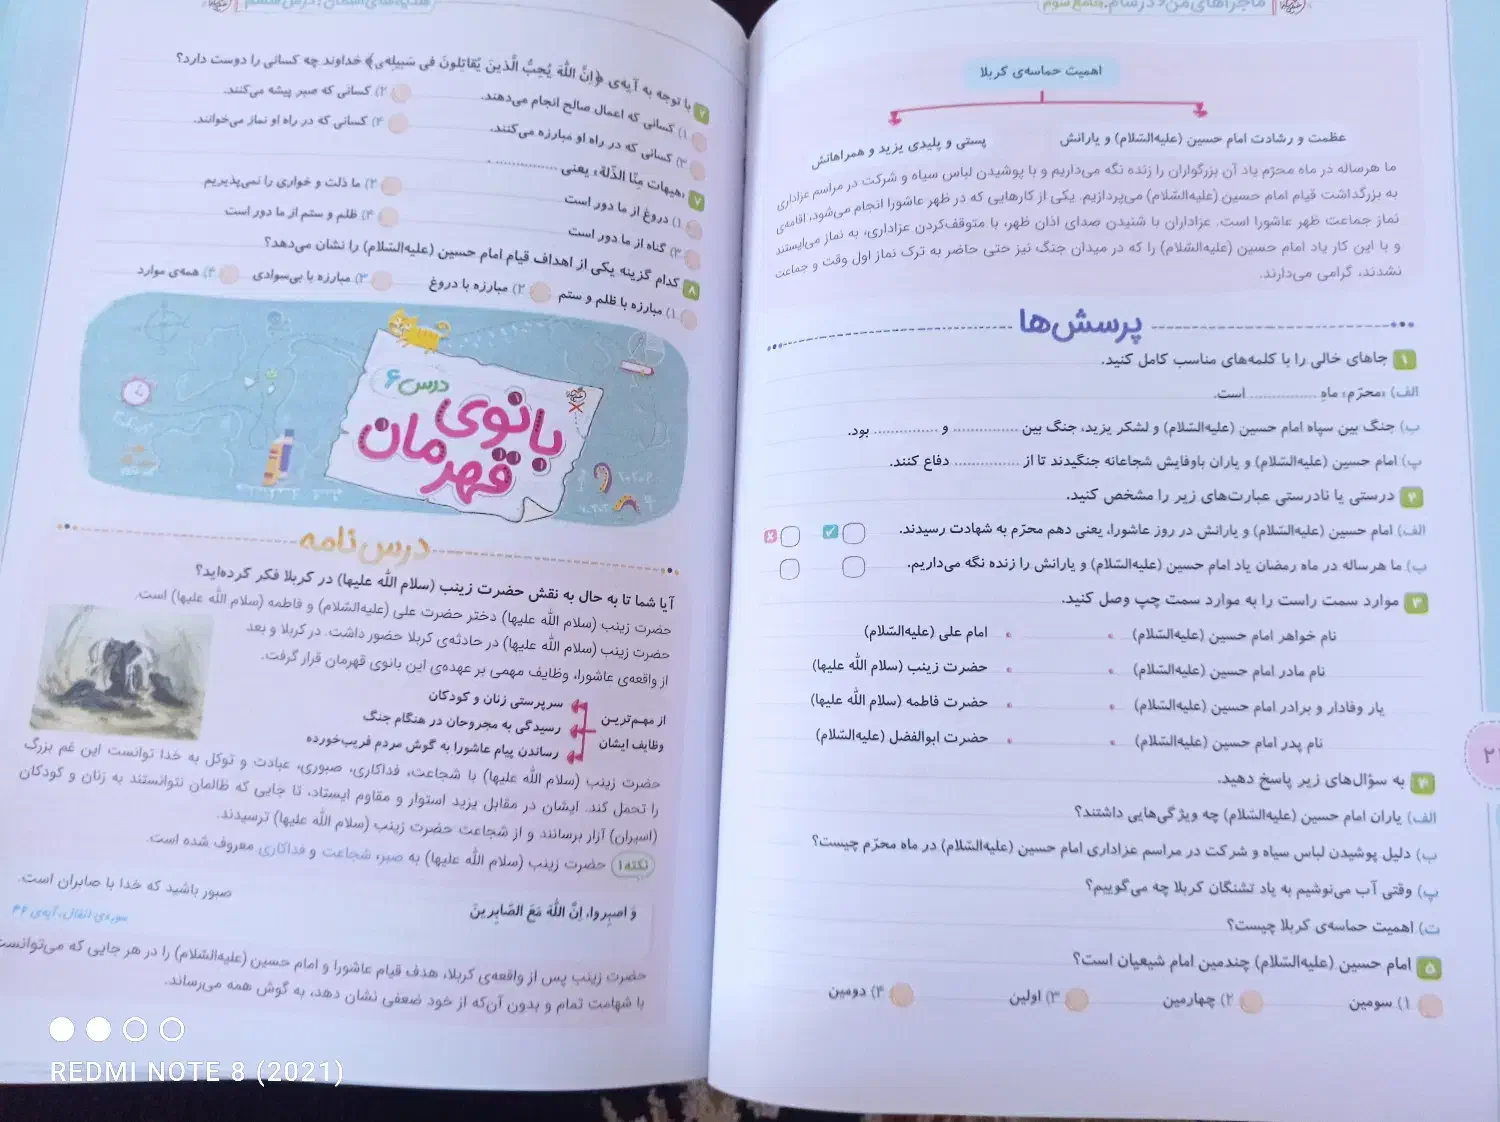 ماجراهای من و درسام. جامع سوم
اهمیت حماسه‌ی کربلا
عظمت و رشادت امام حسین (علیه‌السّلام) و یارانش
پستی و پلیدی یزید و همراهانش
ما هرساله در ماه محرّم یاد آن بزرگواران را زنده نگه می‌داریم و با پوشیدن لباس سیاه و شرکت در مراسم عزاداری
به بزرگداشت قیام امام حسین (علیه‌السّلام) می‌پردازیم. یکی از کارهایی که در ظهر عاشورا انجام می‌شود، اقامه‌ی
نماز جماعت ظهر عاشورا است. عزاداران با شنیدن صدای اذان ظهر، با متوقف‌کردن عزاداری، به نماز می‌ایستند
و با این کار یاد امام حسین (علیه‌السّلام) را که در میدان جنگ نیز حتی حاضر به ترک نماز اول وقت و جماعت
نشدند، گرامی می‌دارند.
پرسش‌ها
۱ جاهای خالی را با کلمه‌های مناسب کامل کنید.
الف) «محرّم» ماهِ .............. است.
ب) جنگ بین سپاه امام حسین (علیه‌السّلام) و لشکر یزید، جنگ بین .............. و .............. بود.
پ) امام حسین (علیه‌السّلام) و یاران باوفایش شجاعانه جنگیدند تا از .............. دفاع کنند.
۲ درستی یا نادرستی عبارت‌های زیر را مشخص کنید.
الف) امام حسین (علیه‌السّلام) و یارانش در روز عاشورا، یعنی دهم محرّم به شهادت رسیدند.
ب) ما هرساله در ماه رمضان یاد امام حسین (علیه‌السّلام) و یارانش را زنده نگه می‌داریم.
۳ موارد سمت راست را به موارد سمت چپ وصل کنید.
نام خواهر امام حسین (علیه‌السّلام) • • امام علی (علیه‌السّلام)
نام مادر امام حسین (علیه‌السّلام) • • حضرت زینب (سلام الله علیها)
یار وفادار و برادر امام حسین (علیه‌السّلام) • • حضرت فاطمه (سلام الله علیها)
نام پدر امام حسین (علیه‌السّلام) • • حضرت ابوالفضل (علیه‌السّلام)
۴ به سؤال‌های زیر پاسخ دهید.
الف) یاران امام حسین (علیه‌السّلام) چه ویژگی‌هایی داشتند؟
ب) دلیل پوشیدن لباس سیاه و شرکت در مراسم عزاداری امام حسین (علیه‌السّلام) در ماه محرّم چیست؟
پ) وقتی آب می‌نوشیم به یاد تشنگان کربلا چه می‌گوییم؟
ت) اهمیت حماسه‌ی کربلا چیست؟
۵ امام حسین (علیه‌السّلام) چندمین امام شیعیان است؟
۱) سومین ۲) چهارمین ۳) اولین ۴) دومین
با توجه به آیه‌ی ﴿اِنَّ اللّٰهَ یُحِبُّ الَّذینَ یُقاتِلونَ فی سَبیلِهی﴾ خداوند چه کسانی را دوست دارد؟
۱) کسانی که اعمال صالح انجام می‌دهند. ۲) کسانی که صبر پیشه می‌کنند.
۳) کسانی که در راه او مبارزه می‌کنند. ۴) کسانی که در راه او نماز می‌خوانند.
۷ «هیهات مِنّا الذّلة» یعنی ..............
۱) دروغ از ما دور است ۲) ما ذلت و خواری را نمی‌پذیریم
۳) گناه از ما دور است ۴) ظلم و ستم از ما دور است
۸ کدام گزینه یکی از اهداف قیام امام حسین (علیه‌السّلام) را نشان می‌دهد؟
۱) مبارزه با ظلم و ستم ۲) مبارزه با دروغ ۳) مبارزه با بی‌سوادی ۴) همه‌ی موارد
درس ۶
بانوی
قهرمان
درس‌نامه
آیا شما تا به حال به نقش حضرت زینب (سلام الله علیها) در کربلا فکر کرده‌اید؟
حضرت زینب (سلام الله علیها) دختر حضرت علی (علیه‌السّلام) و فاطمه (سلام الله علیها) است.
حضرت زینب (سلام الله علیها) در حادثه‌ی کربلا حضور داشت. در کربلا و بعد
از واقعه‌ی عاشورا، وظایف مهمی بر عهده‌ی این بانوی قهرمان قرار گرفت.
از مهم‌ترین
وظایف ایشان
سرپرستی زنان و کودکان
رسیدگی به مجروحان در هنگام جنگ
رساندن پیام عاشورا به گوش مردم فریب‌خورده
حضرت زینب (سلام الله علیها) با شجاعت، فداکاری، صبوری، عبادت و توکل به خدا توانست این غم بزرگ
را تحمل کند. ایشان در مقابل یزید استوار و مقاوم ایستاد، تا جایی که ظالمان نتوانستند به زنان و کودکان
(اسیران) آزار برسانند و از شجاعت حضرت زینب (سلام الله علیها) ترسیدند.
نکته۱ حضرت زینب (سلام الله علیها) به صبر، شجاعت و فداکاری معروف شده است.
وَ اصبِروا، اِنَّ اللّٰهَ مَعَ الصّابِرینَ
صبور باشید که خدا با صابران است.
سوره‌ی انفال، آیه‌ی ۴۶
حضرت زینب پس از واقعه‌ی کربلا، هدف قیام عاشورا و امام حسین (علیه‌السّلام) را در هر جایی که می‌توانست
با شهامت تمام و بدون آن‌که از خود ضعفی نشان دهد، به گوش همه می‌رساند.
REDMI NOTE 8 (2021)